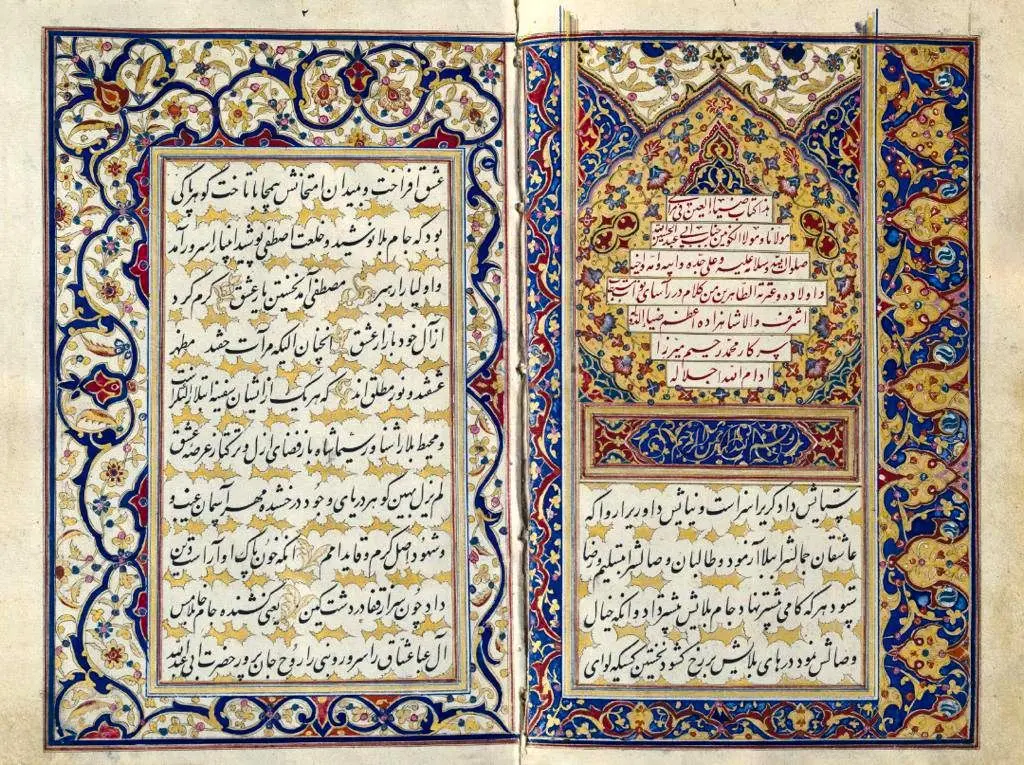 هذا کتاب ضیاء العین فی مرثی
مولانا و مولا الکونین جناب ابی عبد الحسین
صلوات الله و سلامه علیه و علی جده و ابیه و امه و
و اولاده و عترته الطاهرین من کلام در آسای نواب
اشرف والا شاهزاده اعظم ضیاء
سرکار محمد رحیم میرزا
ادام الله اجلاله
بسم الله الرحمن الرحیم
ستایش دادگریرا سزاست و نیایش داوریرا روا که
عاشقان جمالش را ببلا آزمود و طالبان وصالش را بتسلیم و رضا
ستود هر که گامی پیشتر نهاد جام بلایش بیشتر داد و آنکه خیال
وصالش نمود درهای بلایش بر رخ گشود نخستین کسیکه لوای
۲
عشق افراخت و بمیدان امتحانش همی تاخت گوهر پاکی
بود که جام بلا نوشید و خلعت اصطفی پوشید انبیا را سرور آمد
و اولیا را رهبر مصطفی آمد نخستین یا عشق گرم کرد
از آل خود بازار عشق آنچنان آلیکه مرآت حقند مظهر
عشقند و نور مطلق اند که هریک از ایشان سفینه ابتلا را لنگرند
و محیط بلا را شناور سیما شاه مار فضای ازل و یکه تاز عرصه عشق
لم یزل بهین گوهر دریای وجود درخشنده مهر آسمان غیب و
شهود اصل کرم و قاید امم آنکه خون پاک او آراست دین
داد چون سر از قفا در دشت کین یعنی کشنده جام بلا خامس
آل عبا عشاق را سرور و نبی را روح جان پرور حضرت ابی عبدالله